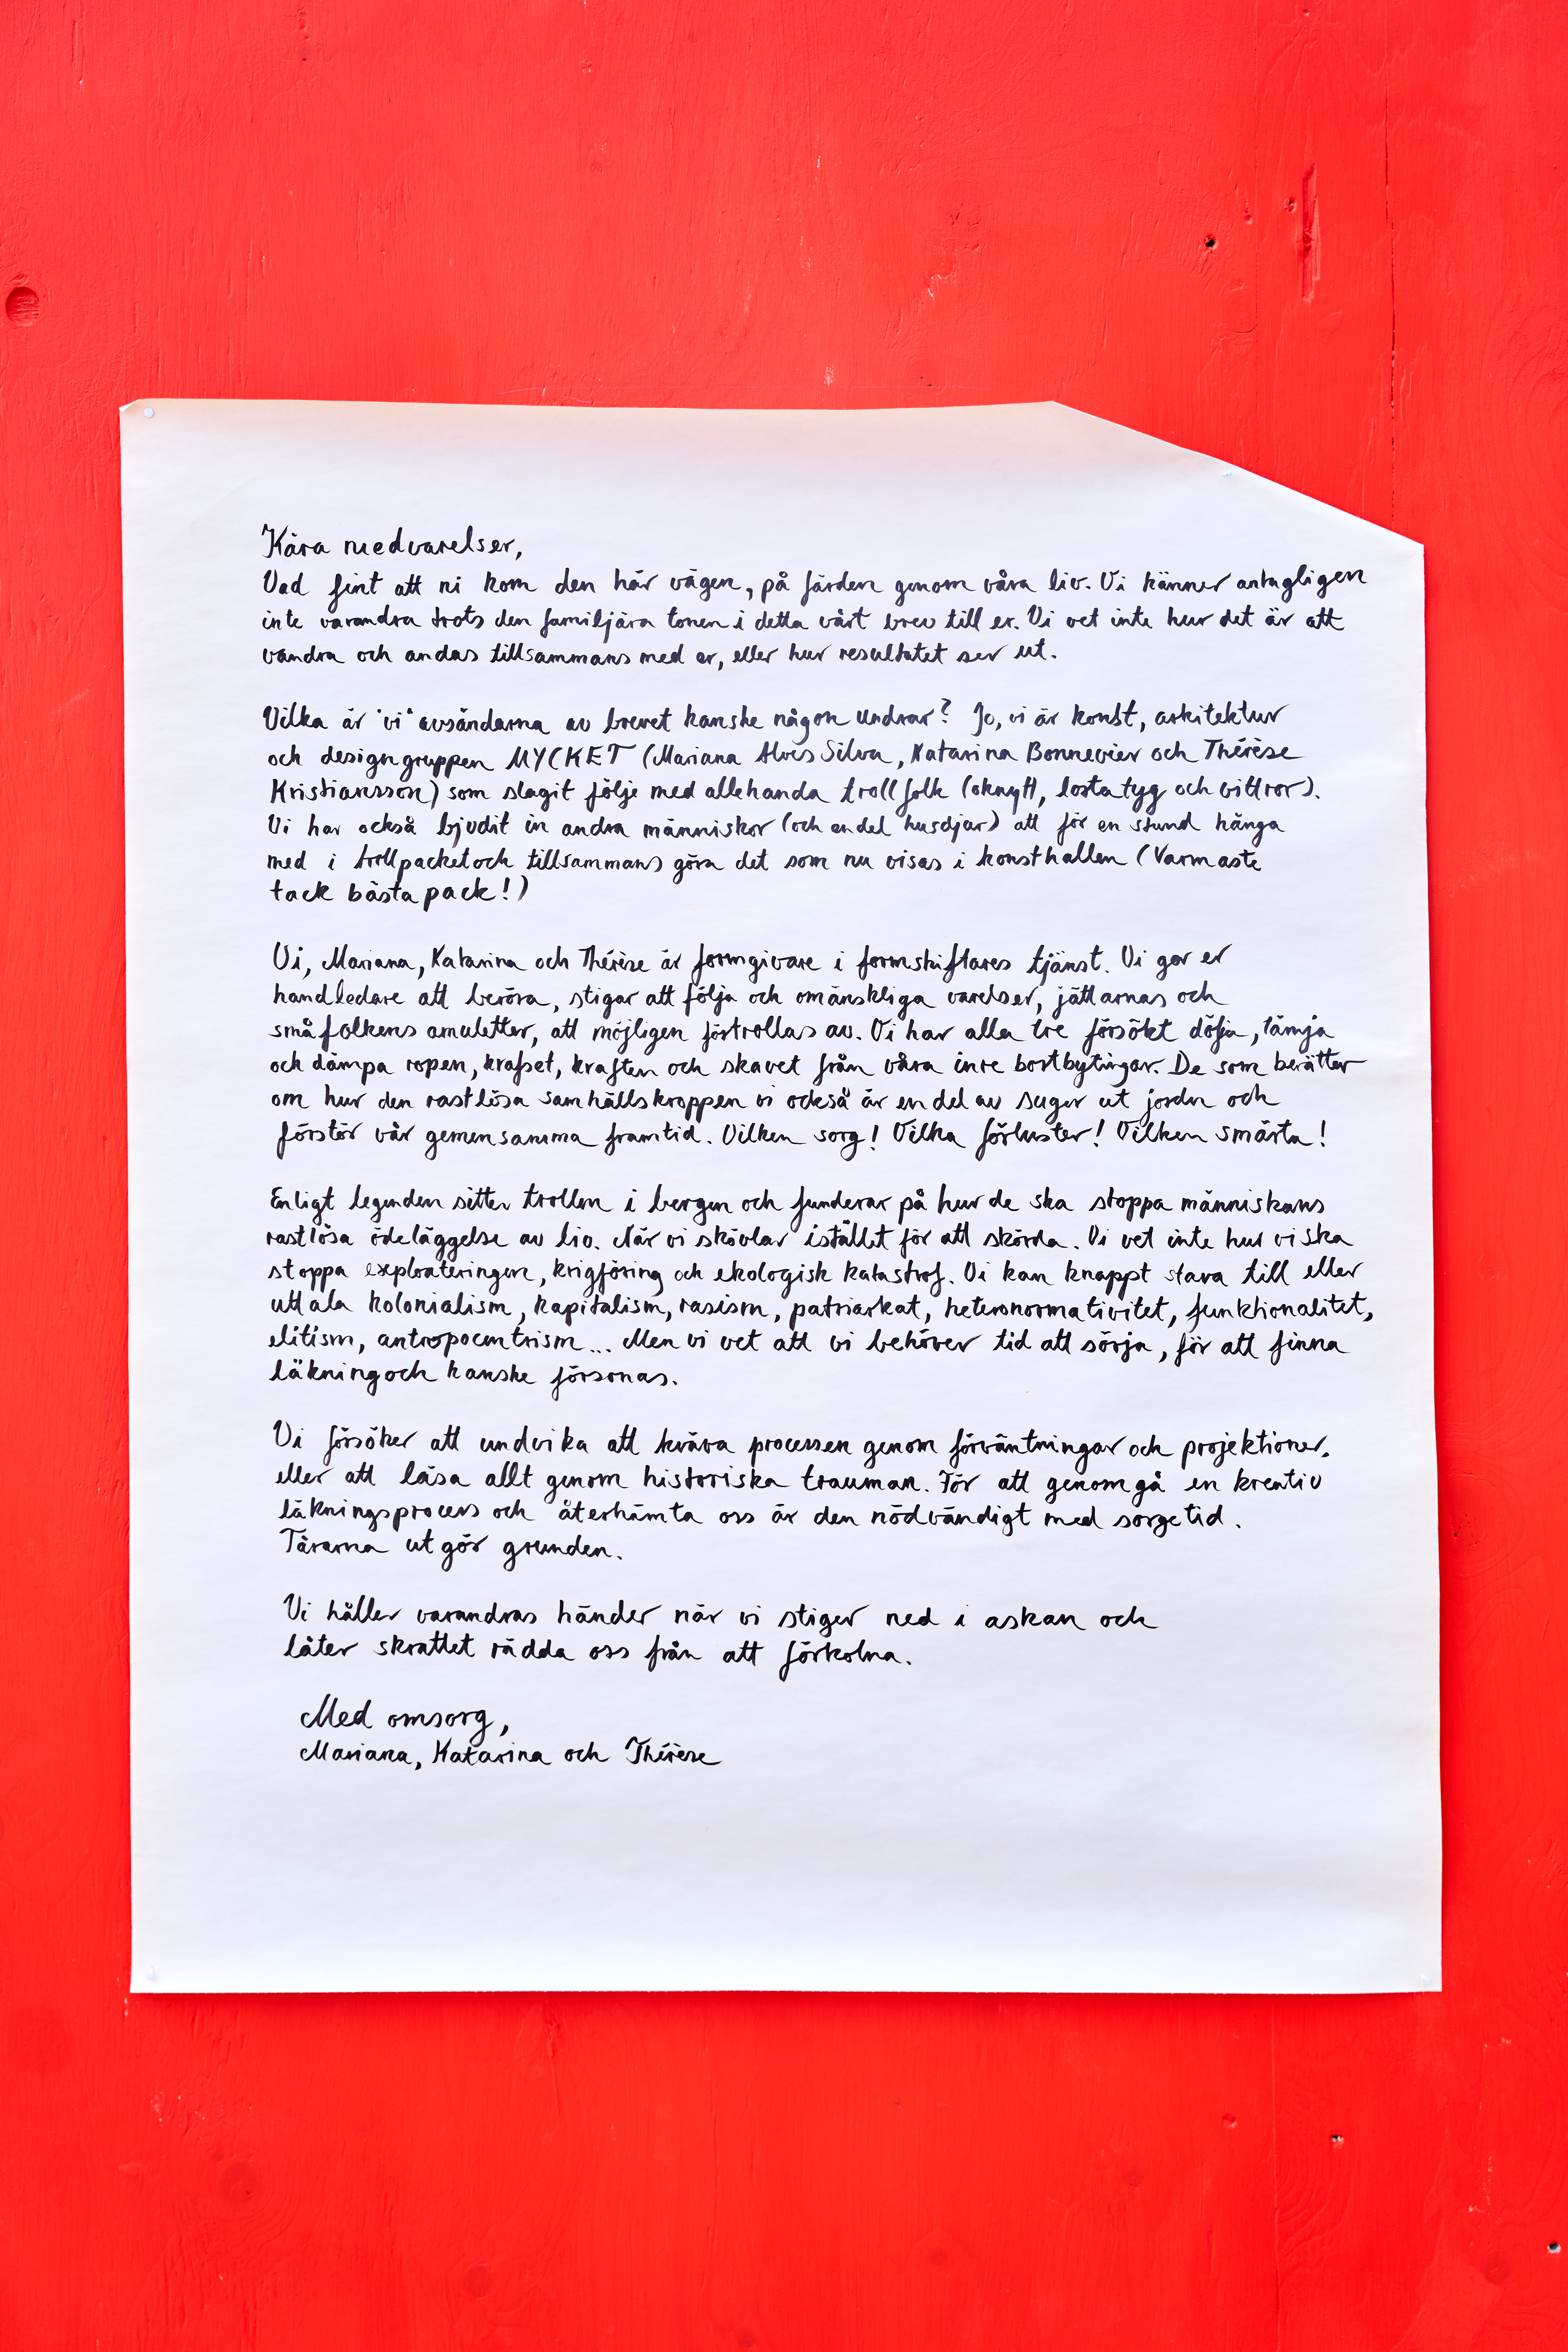 Kära medvarelser,
Vad fint att ni kom den här vägen, på färden genom våra liv. Vi känner antagligen
inte varandra trots den familjära tonen i detta vårt brev till er. Vi vet inte hur det är att
vandra och andas tillsammans med er, eller hur resultatet ser ut.
Vilka är "vi" avsändarna av brevet kanske någon undrar? Jo, vi är konst, arkitektur
och designgruppen MYCKET (Mariana Alves Silva, Katarina Bonnevier och Thérèse
Kristiansson) som slagit följe med allehanda trollfolk (oknytt, lostatyg och vittror).
Vi har också bjudit in andra människor (och en del husdjur) att för en stund hänga
med i trollpacket och tillsammans göra det som nu visas i konsthallen (Varmaste
tack bästa pack!)
Vi, Mariana, Katarina och Thérèse är formgivare i formskiftares tjänst. Vi ger er
handledare att beröra, stigar att följa och omänskliga varelser, jättarnas och
småfolkens amuletter, att möjligen förtrollas av. Vi har alla tre försökt dölja, tämja
och dämpa ropen, krafset, kraften och skavet från våra inre bortbytingar. De som berättar
om hur den rastlösa samhällskroppen vi också är en del av suger ut jorden och
förstör vår gemensamma framtid. Vilken sorg! Vilka förluster! Vilken smärta!
Enligt legenden sitter trollen i bergen och funderar på hur de ska stoppa människans
rastlösa ödeläggelse av liv. När vi skövlar istället för att skörda. Vi vet inte hur vi ska
stoppa exploateringen, krigföring och ekologisk katastrof. Vi kan knappt stava till eller
uttala kolonialism, kapitalism, rasism, patriarkat, heteronormativitet, funktionalitet,
elitism, antropocentrism... Men vi vet att vi behöver tid att sörja, för att finna
läkning och kanske försonas.
Vi försöker att undvika att kväva processen genom förväntningar och projektioner.
eller att läsa allt genom historiska trauman. För att genomgå en kreativ
läkningsprocess och återhämta oss är den nödvändigt med sorgetid.
Tårarna utgör grunden.
Vi håller varandras händer när vi stiger ned i askan och
låter skrattet rädda oss från att förkolna.
Med omsorg,
Mariana, Katarina och Thérèse